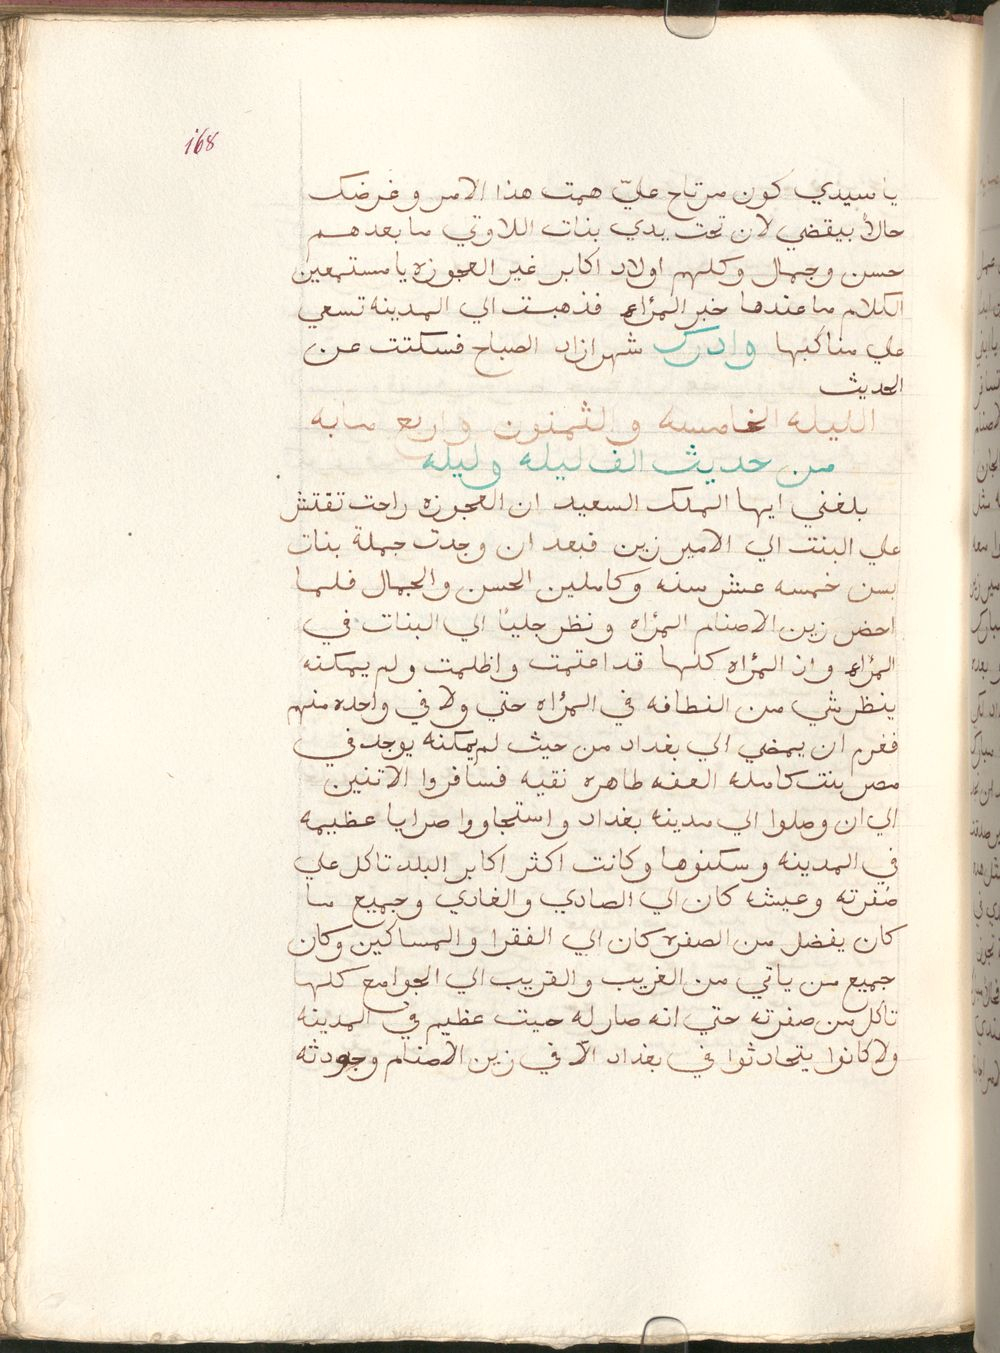 168
يا سيدي كون مرتاح عليّ همت هذا الامر وغرضك
حالاً بيقضي لان تحت يدي بنات اللاوتي ما بعدهم
حسن وجمال وكلهم اولاد اكابر غير العجوزه يا مستمعين
الكلام ما عندها خبر المرٔاه فذهبت الي المدينه تسعي
علي مناكبها وادرك شهرازاد الصباح فسكتت عن
الحديث
الليله الخامسه والثمنون واربع مايه
من حديث الف ليله وليله
بلغني ايها الملك السعيد ان العجوزه راحت تفتش
علي البنت الي الامير زين فبعد ان وجدت جملة بنات
بسن خمسه عشر سنه وكاملين الحسن والجمال فلما
احضر زين الاصنام المرٔاه ونظر جلياً الي البنات في
المرٔاه واذ المرٔاه كلها قد اعتمت واظلمت ولم يمكنه
ينظر شي من النطافه في المرٔاه حتي ولا في واحده منهم
فغرم ان يمضي الي بغداد من حيث لم يمكنه يوجد في
مصر بنت كامله العفه طاهره نقيه فسافروا الاتنين
الي ان وصلوا الي مدينه بغداد واستجاروا صرايا عظيمه
في المدينه وسكنوها وكانت اكثر اكابر البلد تاكل علي
صفرته وعيشه كان الي الصادي والغادي وجميع ما
كان يفضل من الصفره كان الي الفقرا والمساكين وكان
جميع من ياتي من الغريب والقريب الي الجوامع كلها
تاكل من صفرته حتي انه صار له صيت عظيم في المدينه
ولا كانوا يتحادثوا في بغداد الاّ في زين الاصنام وجودته